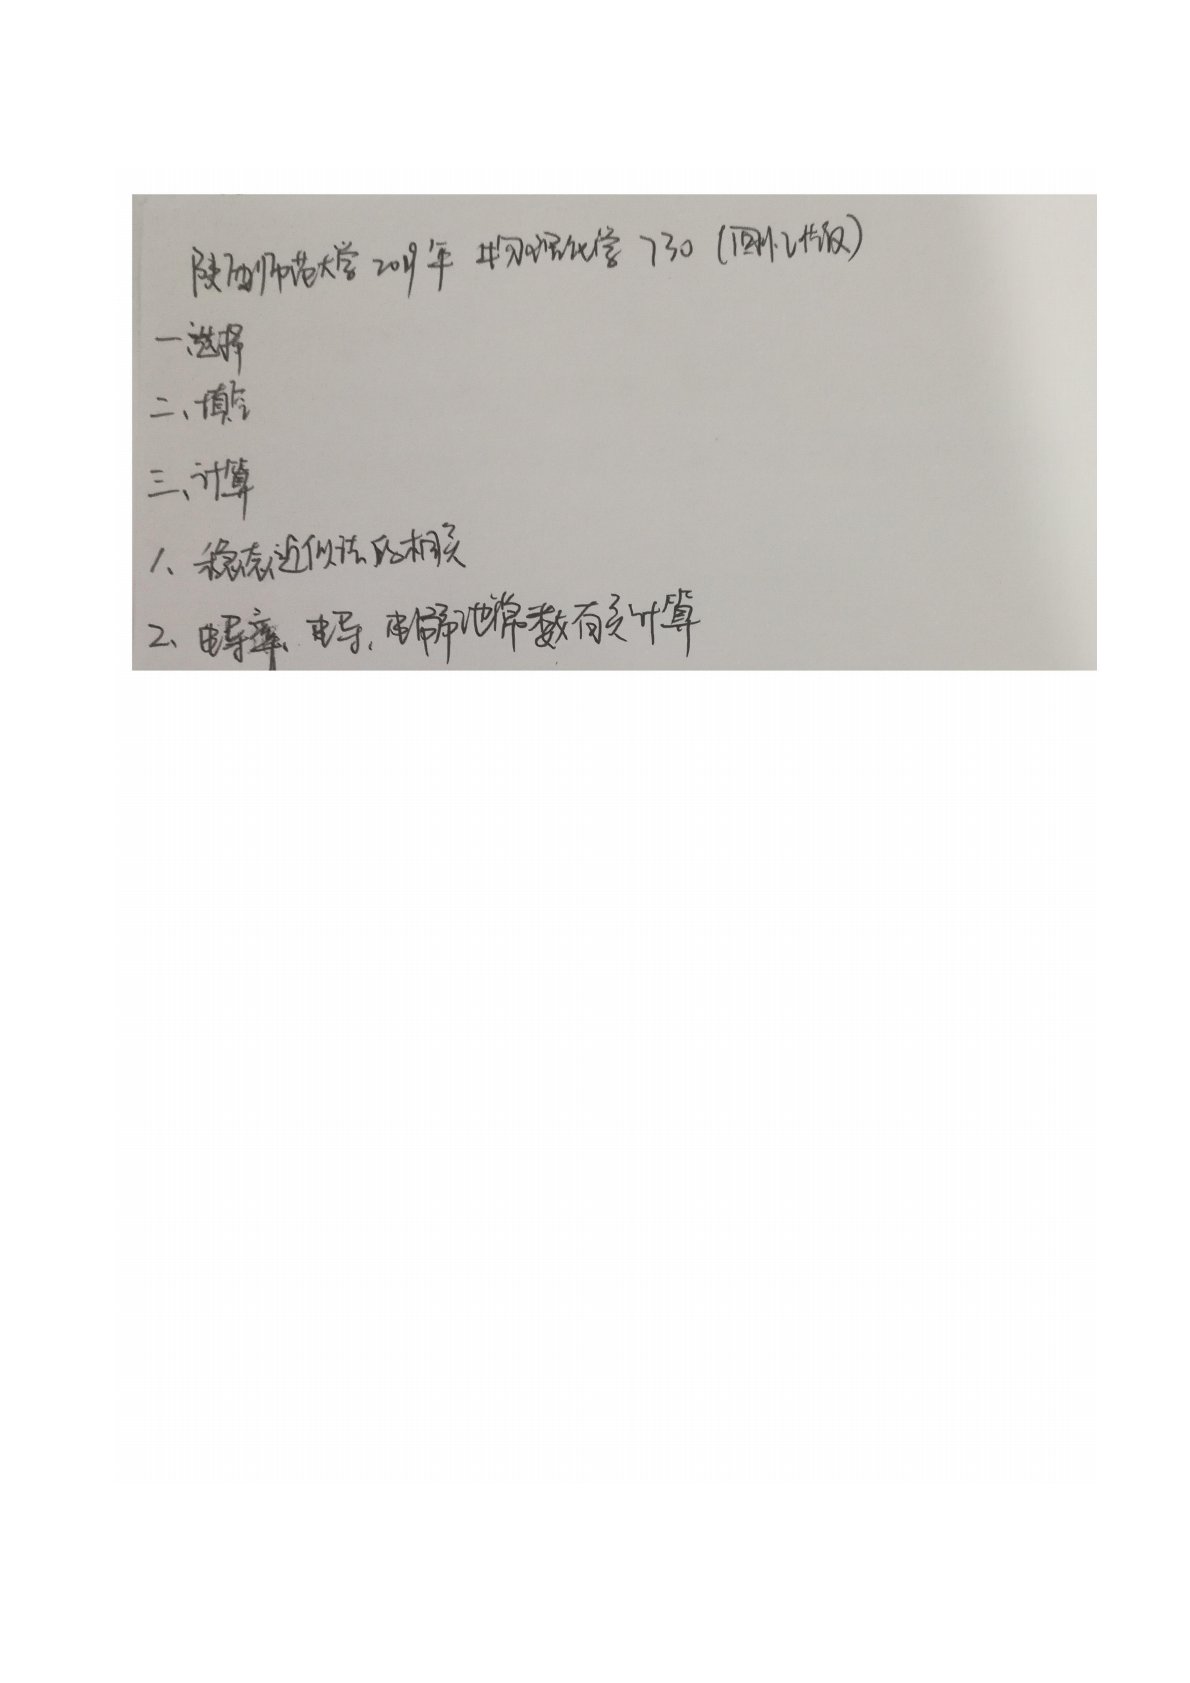 陕西师范大学2019年 物理化学730（回忆版）
一、选择
二、填空
三、计算
1、稳态近似法的相关
2、电导率、电导、电解池常数有关计算